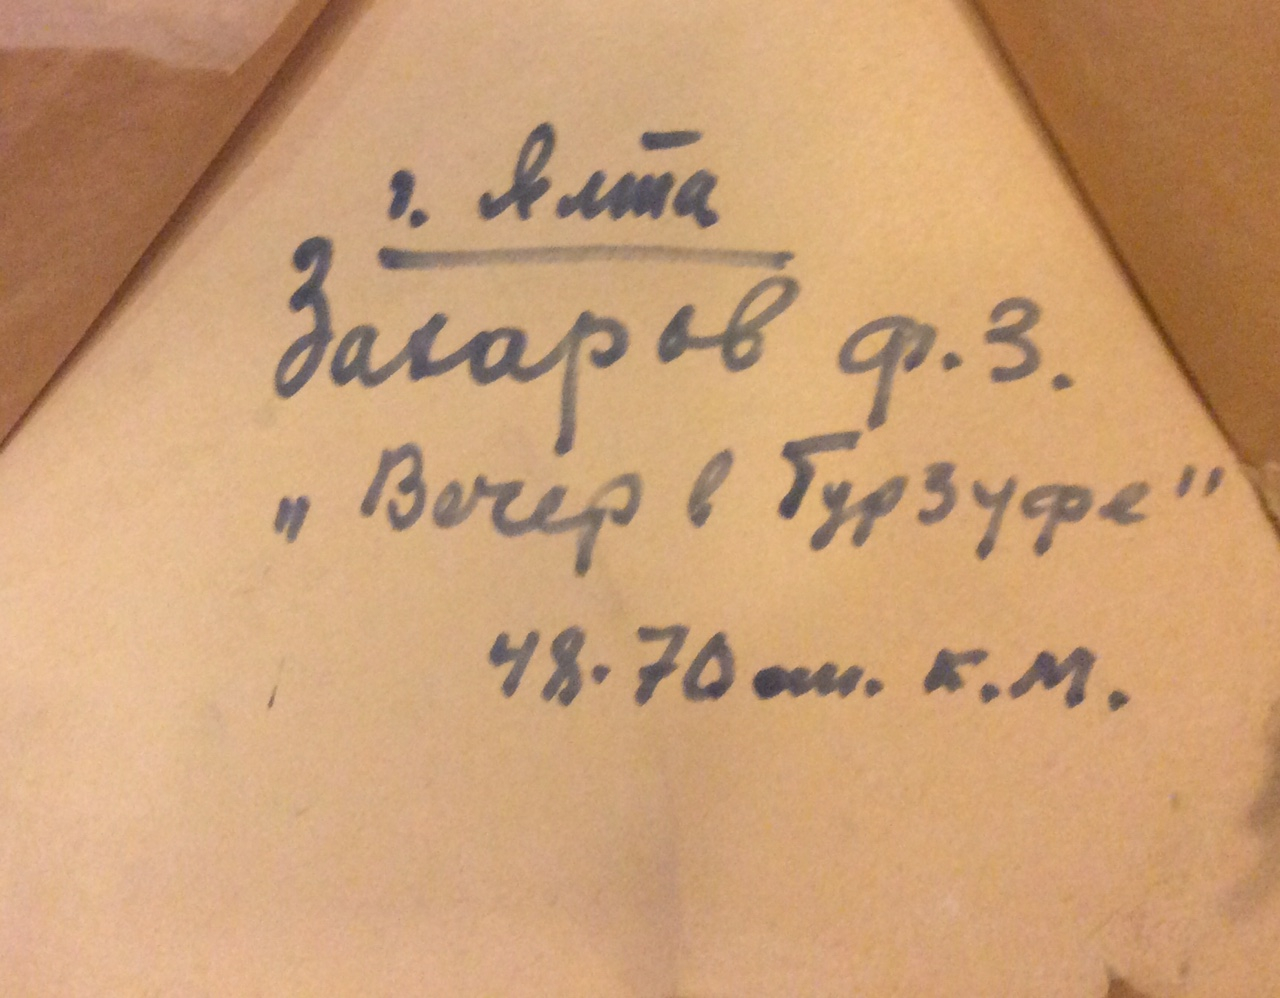 г. Ялта
Захаров Ф.З.
„Вечер в Гурзуфе"
48.70 к.м.